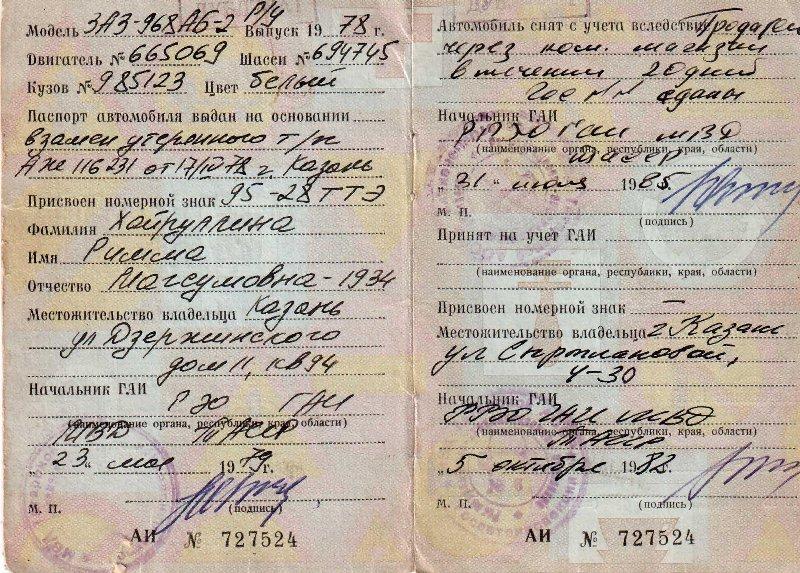 Модель ЗАЗ-968АБ-2 Р/У Выпуск 1978 г.
Двигатель № 665069 Шасси № 694745
Кузов № 985123 Цвет белый
Паспорт автомобиля выдан на основании
взамен утерянного т/п
АЖЕ 116231 от 17/IV-78 г. Казань
Присвоен номерной знак 95-28 ТТЭ
Фамилия Хайруллина
Имя Римма
Отчество Магсумовна - 1934
Местожительство владельца Казань
ул Дзержинского
дом 11, кв 94
Начальник ГАИ
РЭО ГАИ
(наименование органа, республики, края, области)
МВД ТАССР
„ 23 “ мая 1979 г.
М. П. (подпись)
АИ № 727524
Автомобиль снят с учета вследствие Продажи
через ком. магазин
в течении 20 дней
Гос № № сданы
Начальник ГАИ
РЭО ГАИ МВД
(наименование органа, республики, края, области)
ТАССР
„ 31 “ июля 1985 г.
М. П. (подпись)
Принят на учет ГАИ
(наименование органа, республики, края, области)
Присвоен номерной знак —
Местожительство владельца г. Казань
ул Сыртлановой,
4-30
Начальник ГАИ
РЭО ГАИ МВД
(наименование органа, республики, края, области)
ТАССР
„ 5 “ октября 1983 г.
М. П. (подпись)
АИ № 727524